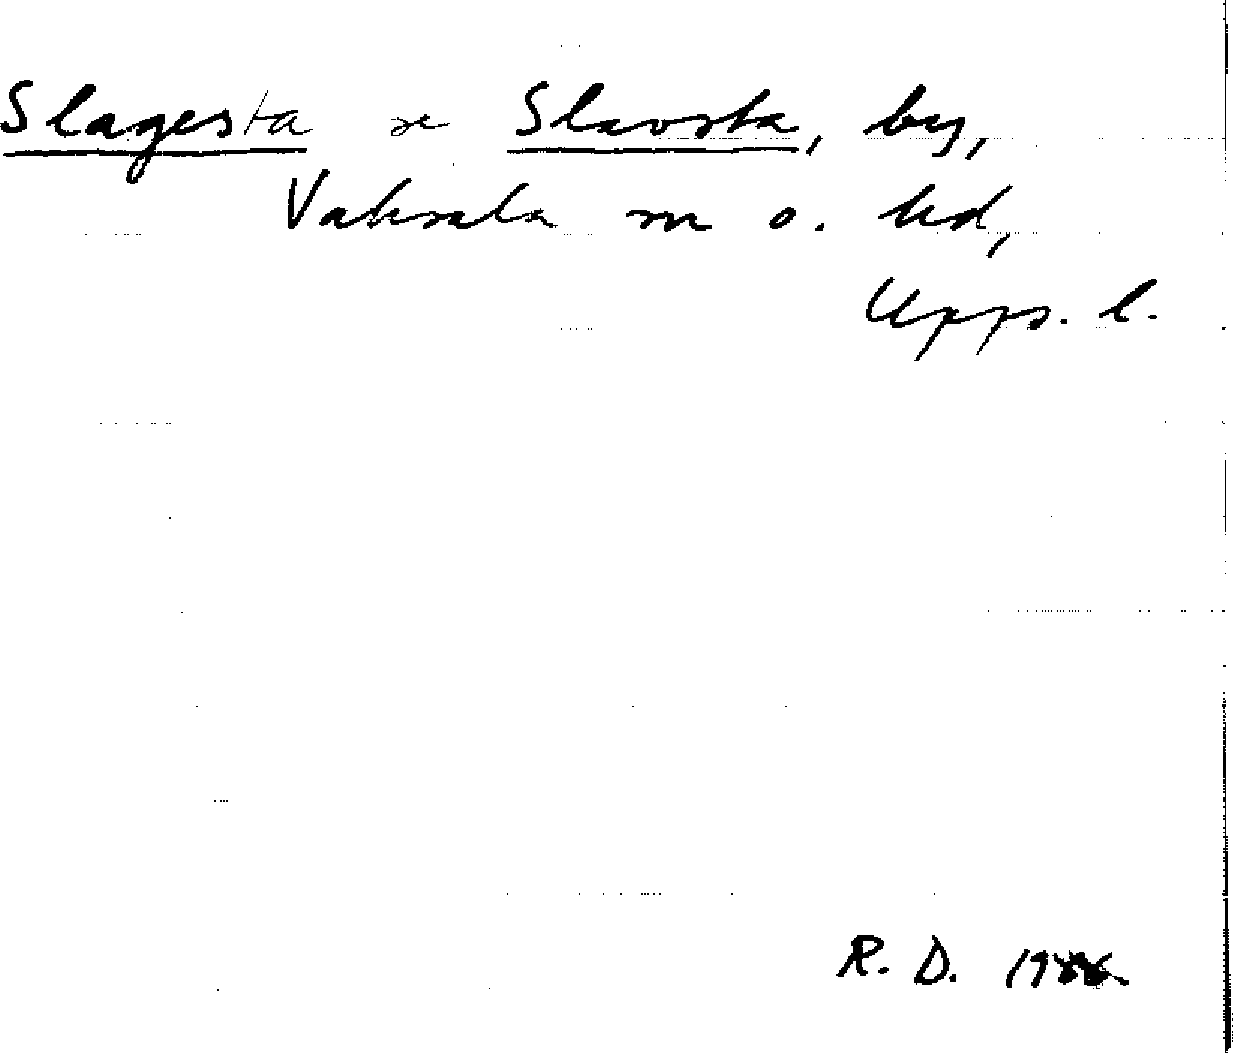 Slagesta se Slavsta, by,
Vaksala sn o. hd,
Upps. l.
R. D.